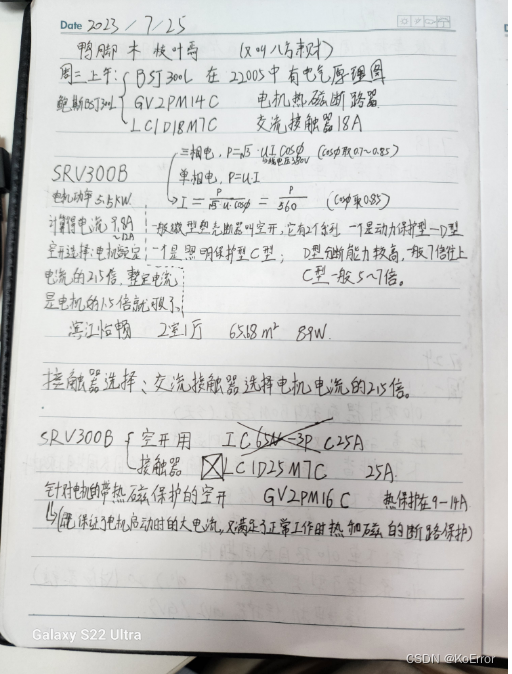 Date 2023/7/25
鸭脚木 枝叶高 (又叫八方来财)
周二上午: BSJ300L 在22005中有电气原理图
鲍斯BSJ30L GV2PM14C 电机热磁断路器
LC1D18M7C 交流接触器18A
三相电, P=√3·UI cosφ (cosφ取0.7~0.85)
线电压380V
单相电, P=U·I
SRV300B
I = P/(√3 U·cosφ) = P/560 (cosφ取0.85)
电机功率5.5KW.
计算得电流9.8A
~12A
一般微型热分断器叫空开, 它有2个系列 一个是动力保护型—D型
空开选择: 电机额定 一个是照明保护型C型; D型分断能力较高, 一般7倍往上
电流的2.5倍, 整定电流 C型一般5~7倍.
是电机的1.5倍就够了
滨江怡顿 2室1厅 65.68m² 89W.
接触器选择: 交流接触器选择电机电流的2.5倍.
SRV300B 空开用 IC65N-3P C25A
接触器 LC1D25M7C 25A.
针对电机的带热磁保护的空开 GV2PM16C 热保护在9-14A
(既保证了电机启动时的大电流, 又满足了正常工作时热和磁的断路保护)
Galaxy S22 Ultra
CSDN @KoError